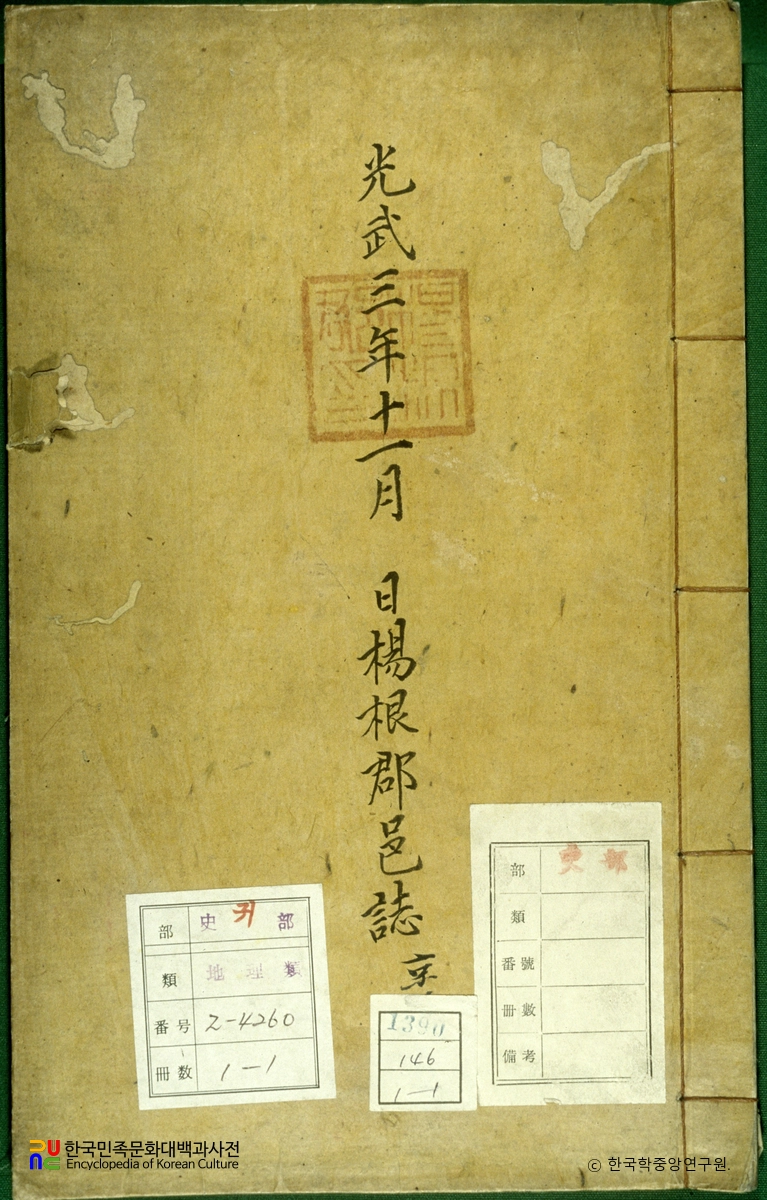 光武三年十一月 日楊根郡邑誌
部 史 귀 部
類 地理類
番号 Z-4260
冊数 1-1
1390
146
1-1
部 史部
類
番號
冊數
備考
한국민족문화대백과사전
Encyclopedia of Korean Culture
© 한국학중앙연구원.